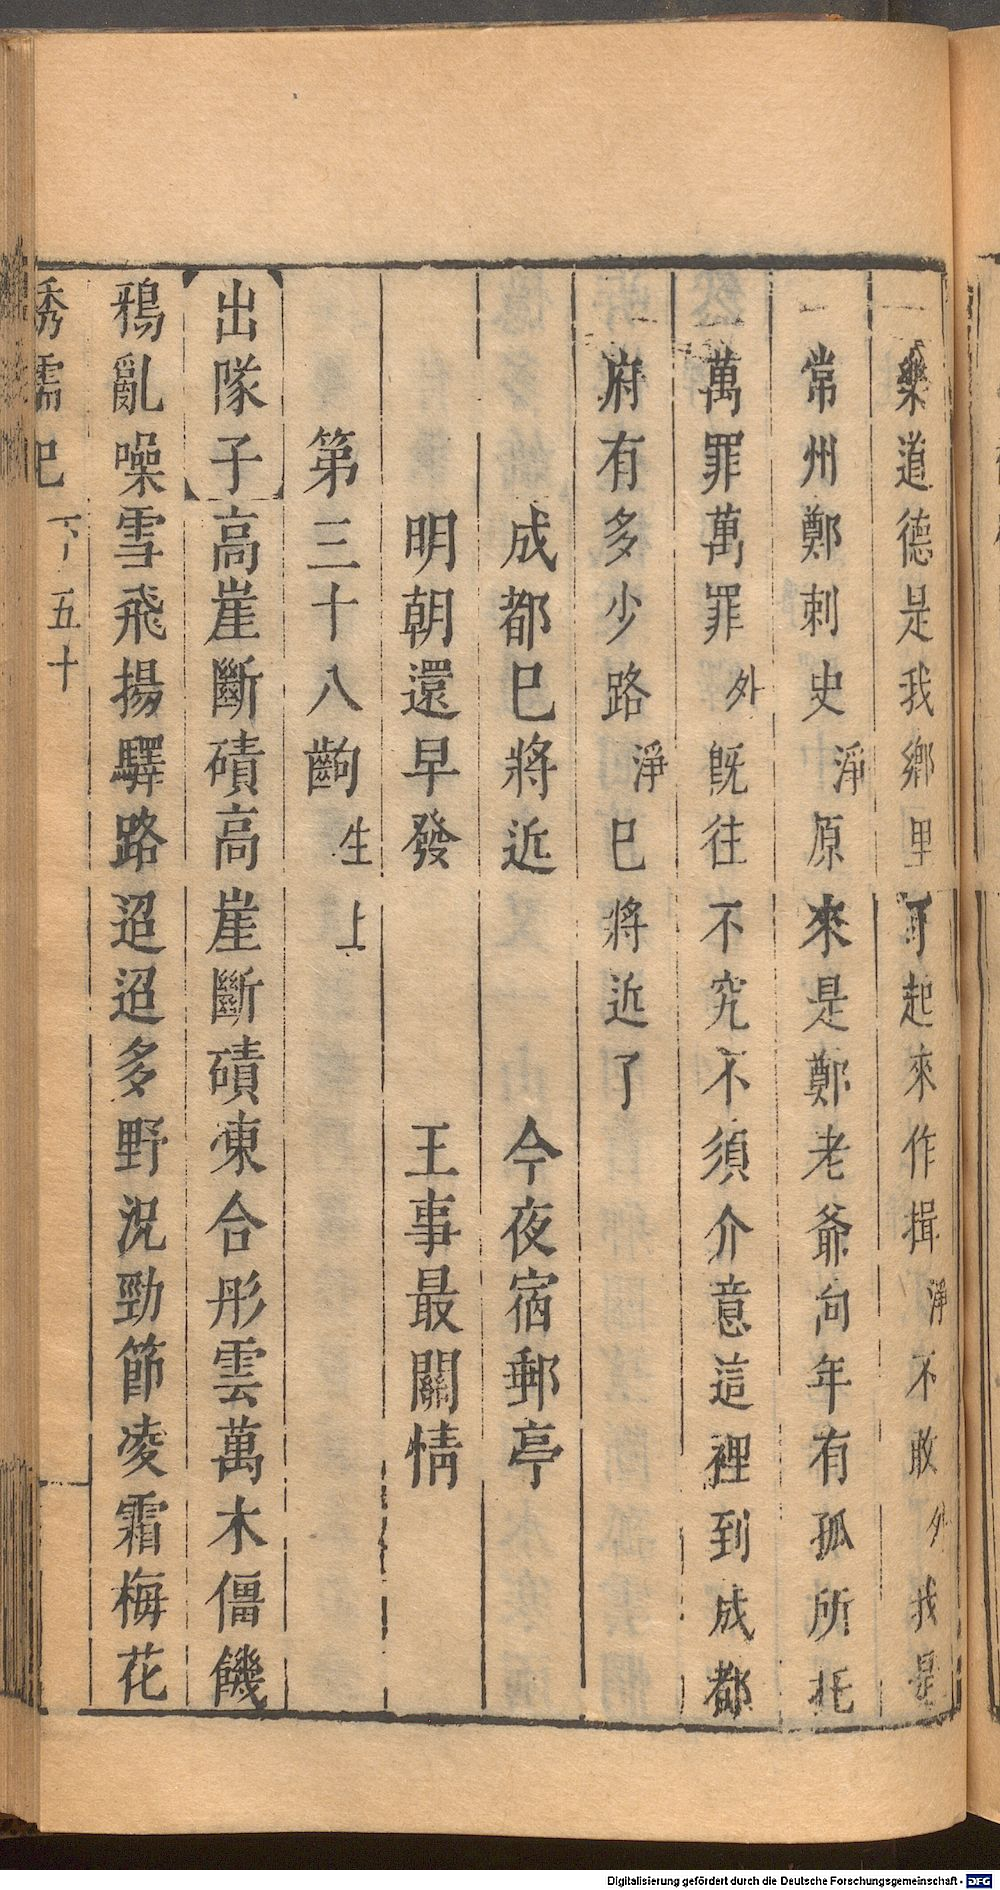 樂道德是我鄉里了起來作揖淨不敢外我是
常州鄭刺史淨原來是鄭老爺向年有孤所托
萬罪萬罪外既往不究不須介意這裡到成都
府有多少路淨巳將近了
成都巳將近　今夜宿郵亭
明朝還早發　王事最關情
第三十八齣生上
【出隊子】高崖斷磧高崖斷磧凍合彤雲萬木僵饑
鴉亂噪雪飛揚驛路迢迢多野況勁節凌霜梅花
綉襦記
下五十
Digitalisierung gefördert durch die Deutsche Forschungsgemeinschaft - DFG